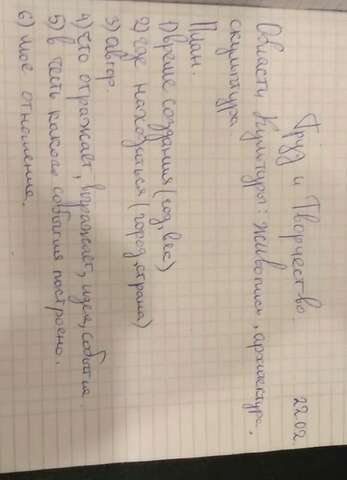 Труд и Творчество. 22.02.
Области Культуры: живопись, архитектура,
скульптура.
План.
1) время создания (год, вес)
2) где находиться (город, страна)
3) автор.
4) что отражает, выражает, идея, событие.
5) в честь какого события построено.
6) моё отношение.